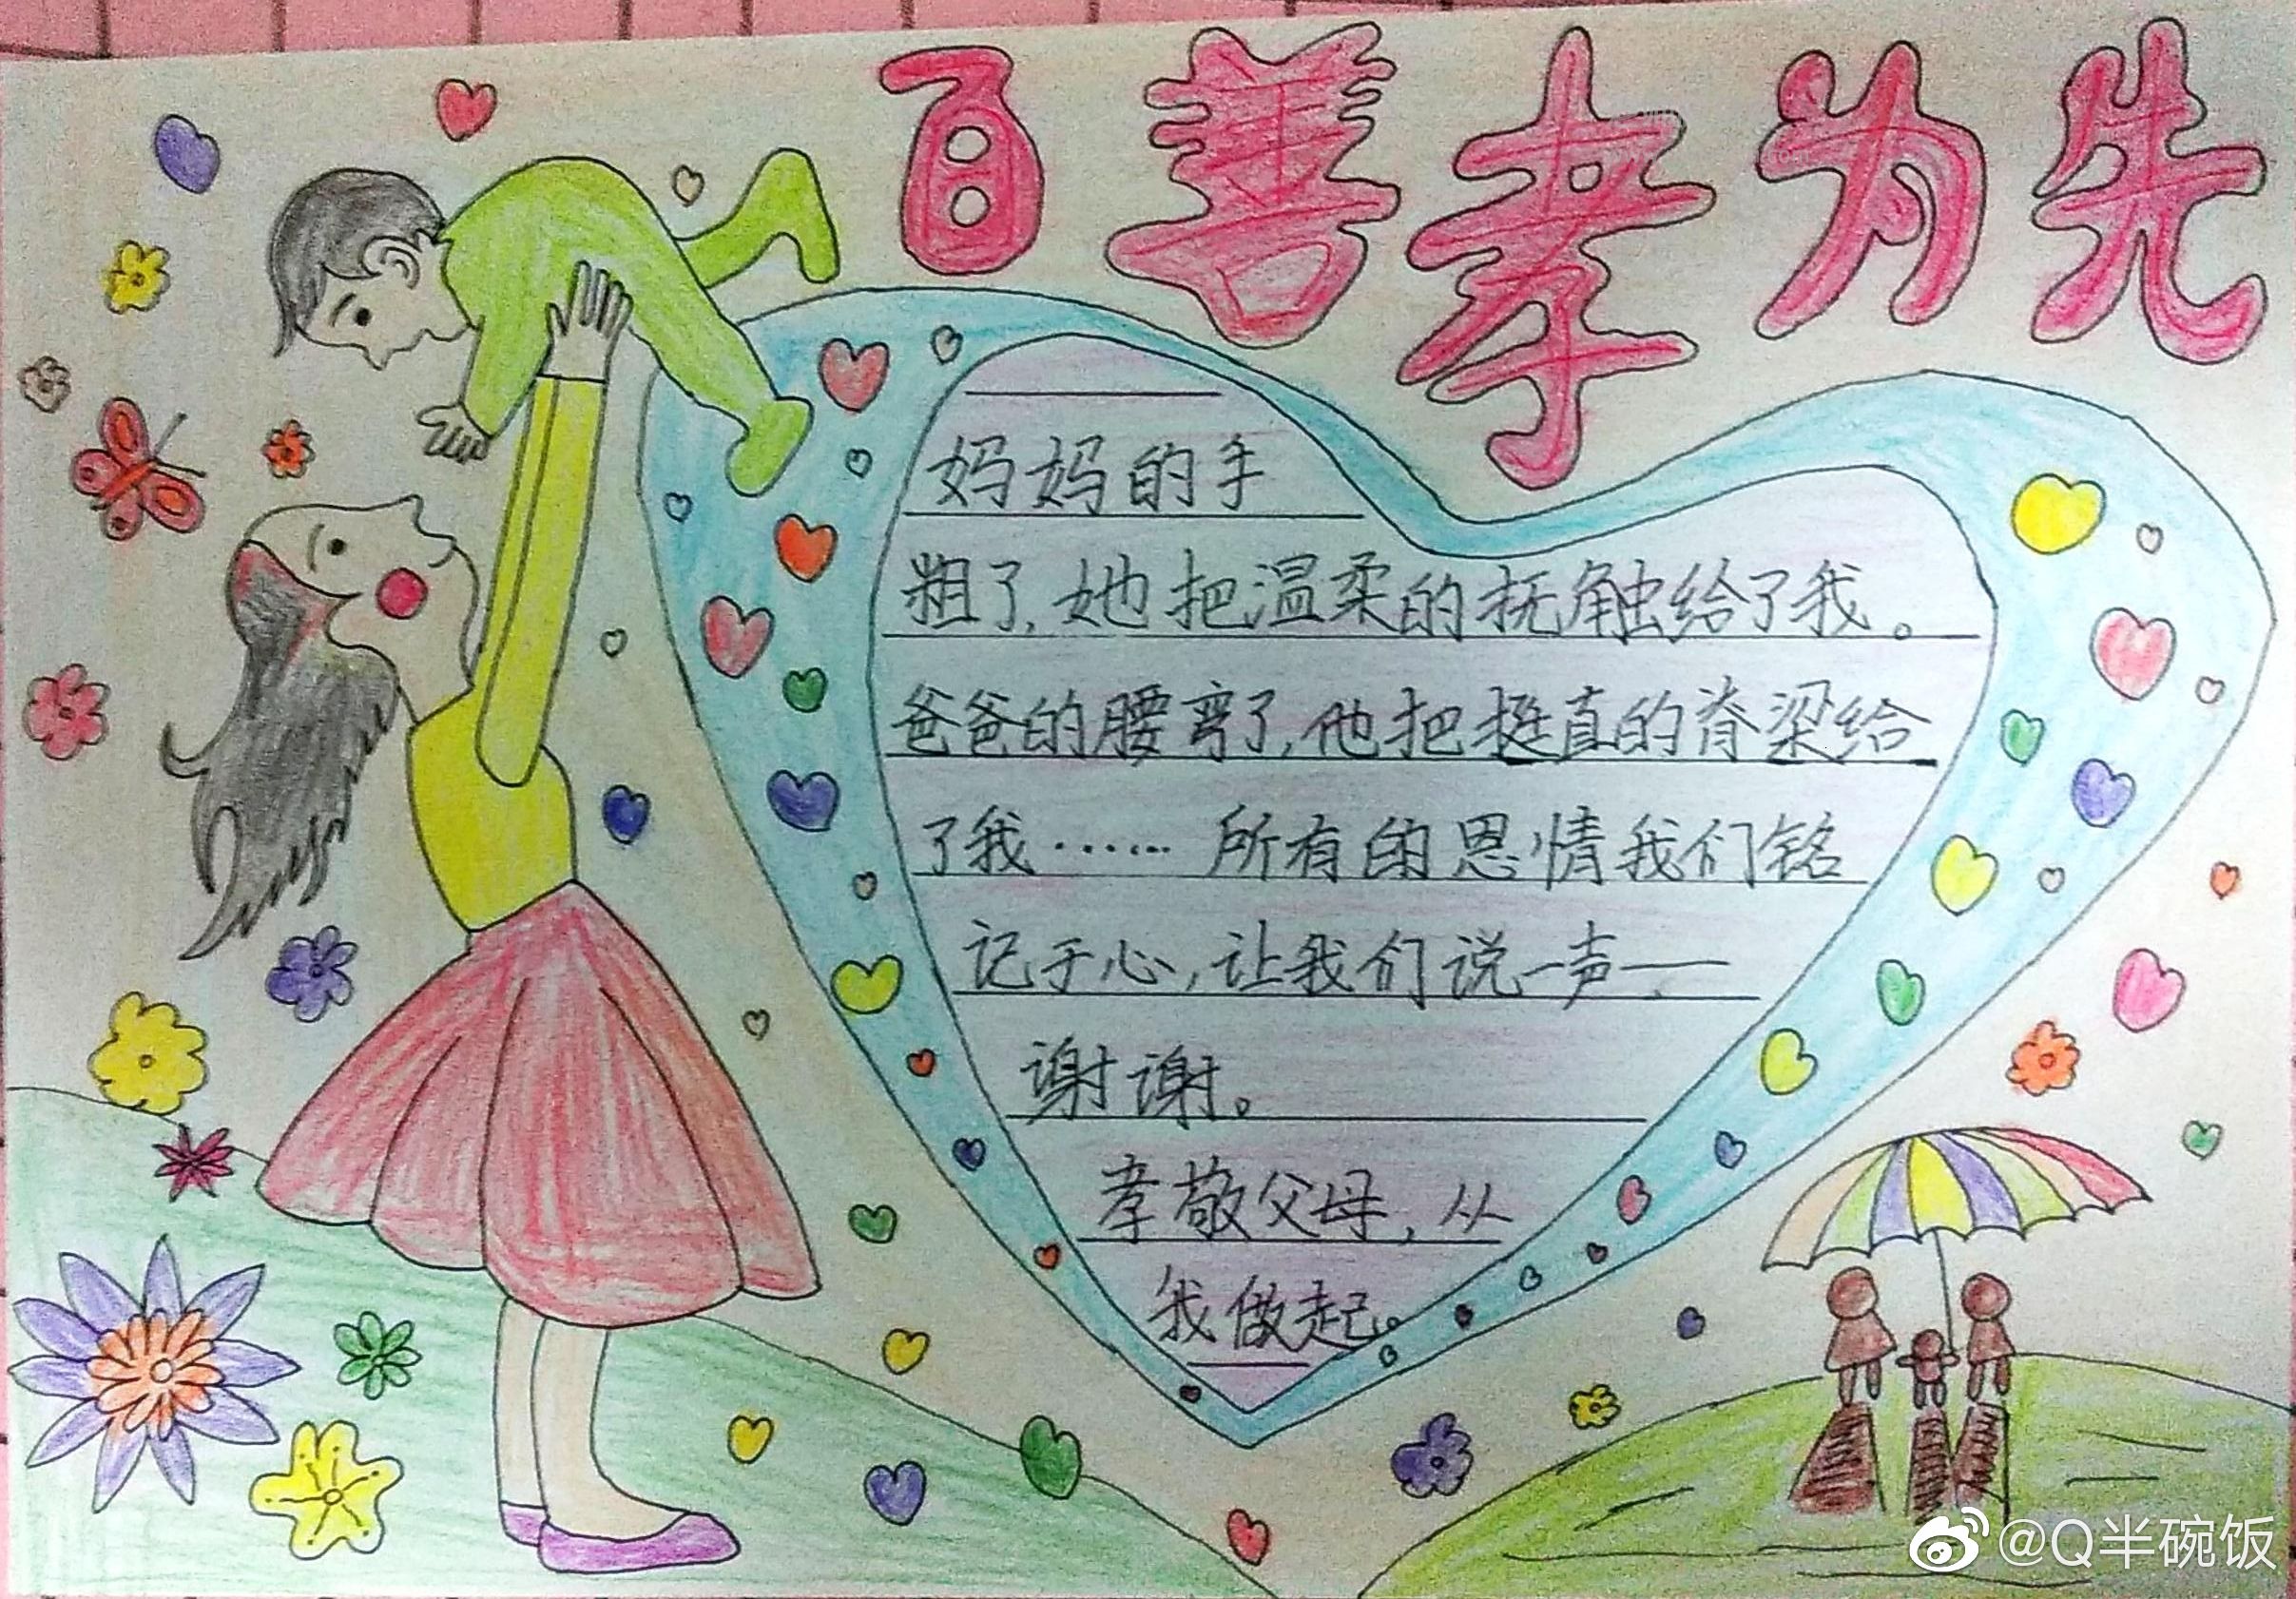 百善孝为先
妈妈的手
粗了,她把温柔的抚触给了我。
爸爸的腰弯了,他把挺直的脊梁给
了我……所有的恩情我们铭
记于心,让我们说一声——
谢谢。
孝敬父母,从
我做起。
@Q半碗饭